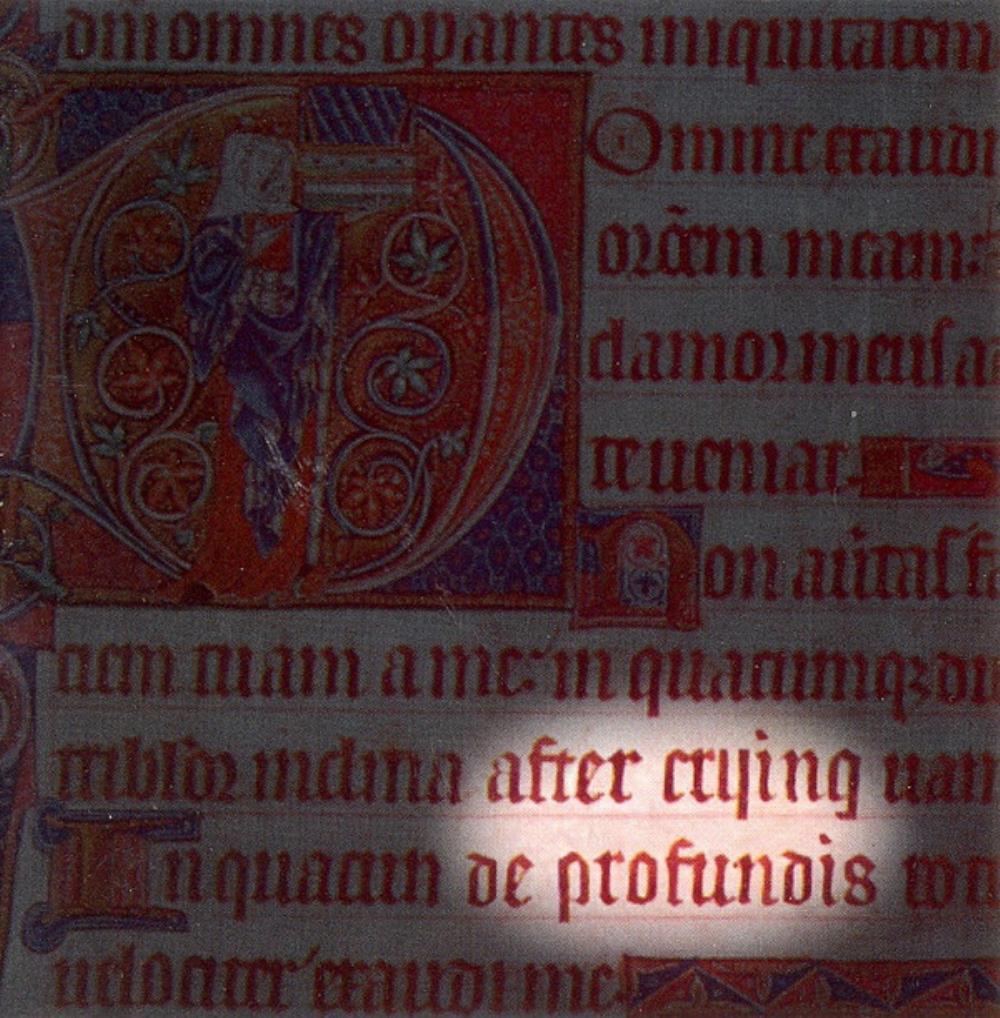 dm omnes opantes iniquitatem
Omine exaudi
orõem meam:
clamor meus a
te veniat.
Non au̾tas fa
ciem tuam a me: in quacumqz di
tribl̾or inclina after crijing uam
In quacun de profundis wn
velociter exaudi me.